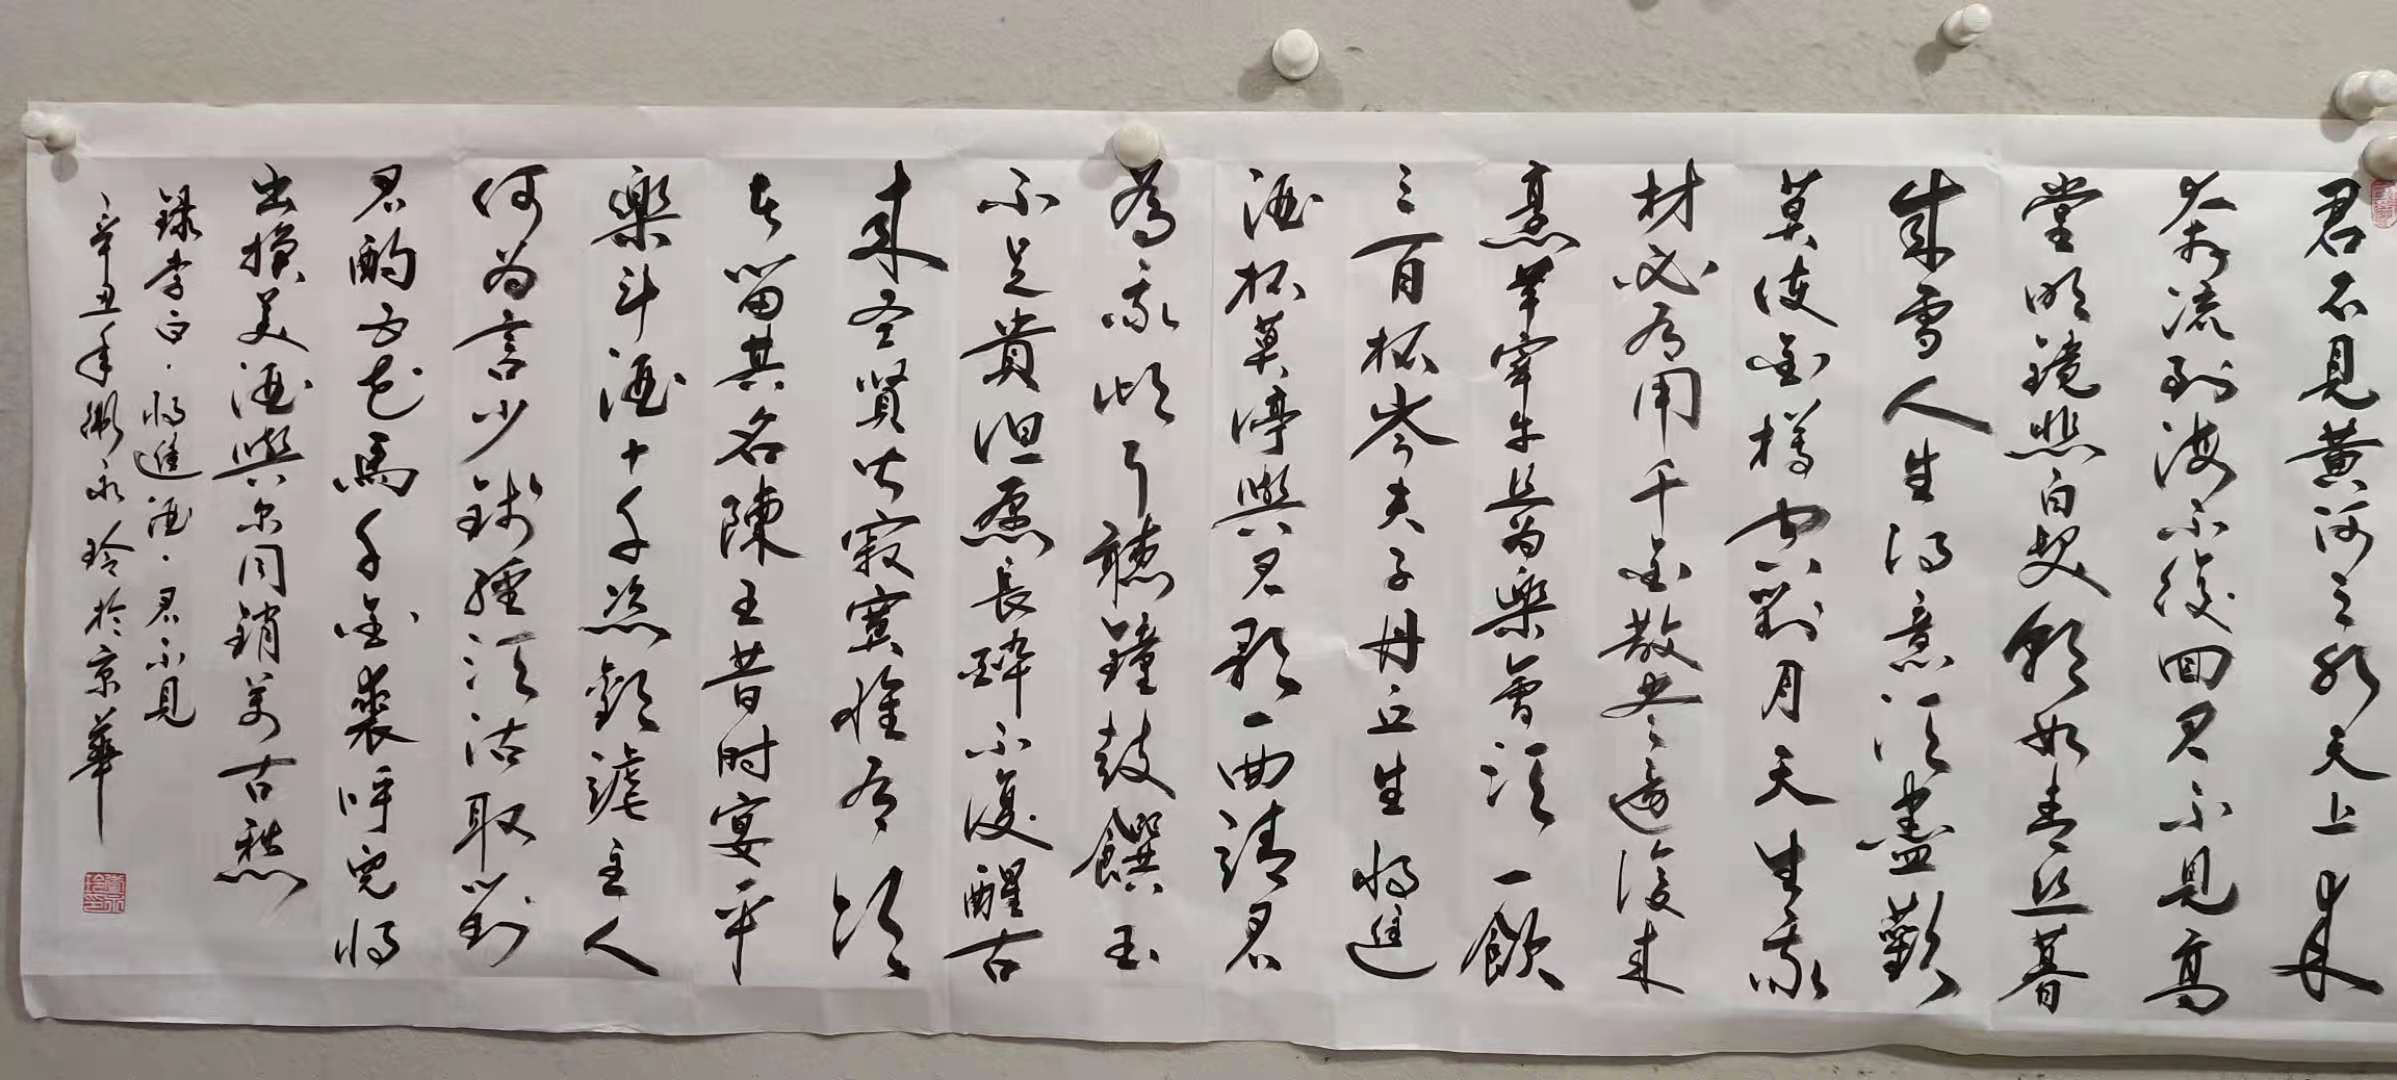 君不見黄河之水天上来
奔流到海不復回君不見高
堂明鏡悲白髮朝如青丝暮
成雪人生得意须盡歡
莫使金樽空對月天生我
材必有用千金散尽還復来
烹羊宰牛且为樂會须一飲
三百杯岑夫子丹丘生将進
酒杯莫停與君歌一曲請君
為我倾耳聽鐘鼓饌玉
不足貴但愿長醉不復醒古
来圣賢皆寂寞惟有饮
者留其名陳王昔时宴平
樂斗酒十千恣歡謔主人
何为言少錢径须沽取對
君酌五花馬千金裘呼兒将
出换美酒與尔同銷万古愁
録李白·将進酒·君不見
辛丑年 永玲於京華